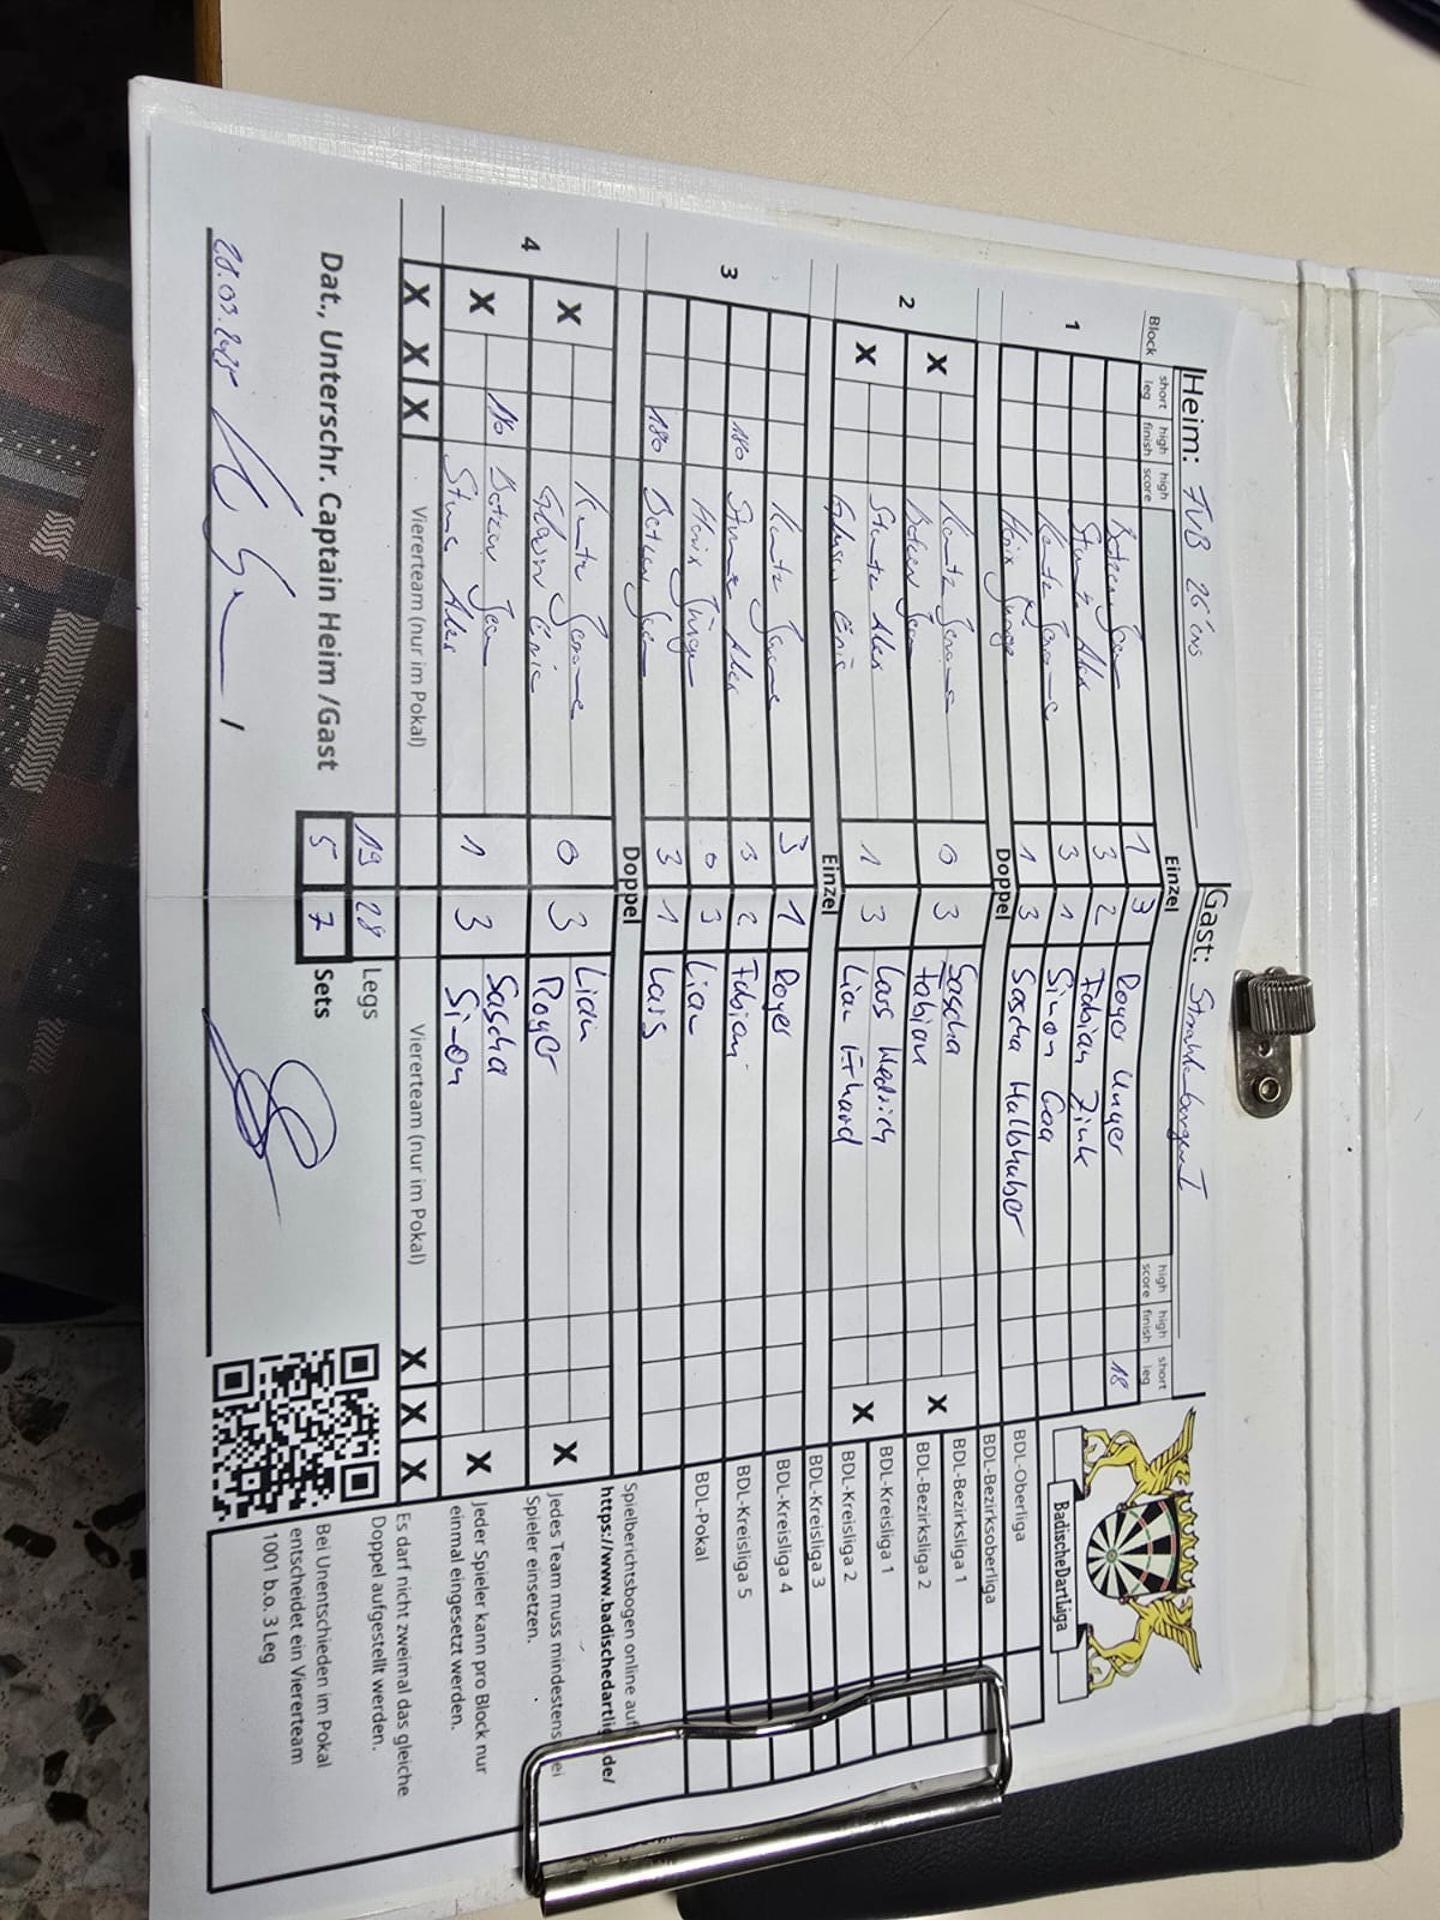 Heim: FVB 26'ers Gast: Strahlenberger I
Block short leg high finish high score Einzel high score high finish short leg
1
Botzen Jean 1 3 Roger Unger 18
Alex 3 2 Fabian Zink
Kuntz Jerome 3 1 Simon Goa
1 3 Sascha Halbhuber
Doppel
2
X Kuntz Jerome 0 3 Sascha X
Botzen Jean Fabian
X Alex 1 3 Lars Wedrich X
Eric Lian Erhard
Einzel
3
Kuntz Jerome 3 1 Roger
180 Alex 3 2 Fabian
0 3 Lian
180 Botzen Jean 3 1 Lars
Doppel
4
X Kuntz Jerome 0 3 Lian X
Eric Roger
X Botzen Jean 1 3 Sascha X
Alex Simon
X X X Viererteam (nur im Pokal) Viererteam (nur im Pokal) X X X
19 28 Legs
Dat., Unterschr. Captain Heim /Gast 5 7 Sets
28.03.2025
BadischeDartLiga
BDL-Oberliga
BDL-Bezirksoberliga
BDL-Bezirksliga 1
BDL-Bezirksliga 2
BDL-Kreisliga 1
BDL-Kreisliga 2
BDL-Kreisliga 3
BDL-Kreisliga 4
BDL-Kreisliga 5
BDL-Pokal
Spielberichtsbogen online auf
https://www.badischedartli de/
Jedes Team muss mindestens ei
Spieler einsetzen.
Jeder Spieler kann pro Block nur
einmal eingesetzt werden.
Es darf nicht zweimal das gleiche
Doppel aufgestellt werden.
Bei Unentschieden im Pokal
entscheidet ein Viererteam
1001 b.o. 3 Leg